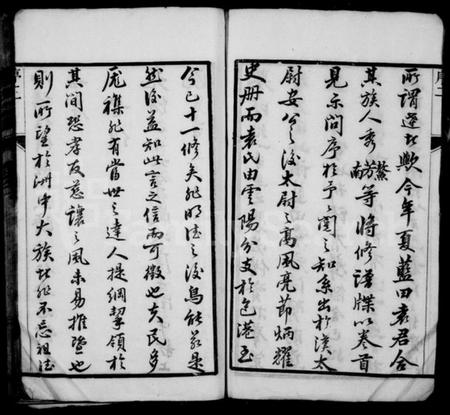 所謂遥遥華胄者歟今年夏藍田袁君合
其族人秀芳鰲南等將修譜牒以卷首
見示問序於予予閱之知系出於漢太
尉安公之後太尉之高風亮節炳耀
史册而袁氏由雲陽分支於邑港至
今已十一修矣非明德之後烏能若是
然後益知此言之信而可徵也夫民多
厖襍非有當世之達人提綱挈領於
其間恐孝友慈讓之風未易推暨也
則所望於洲中大族者非不忘祖德